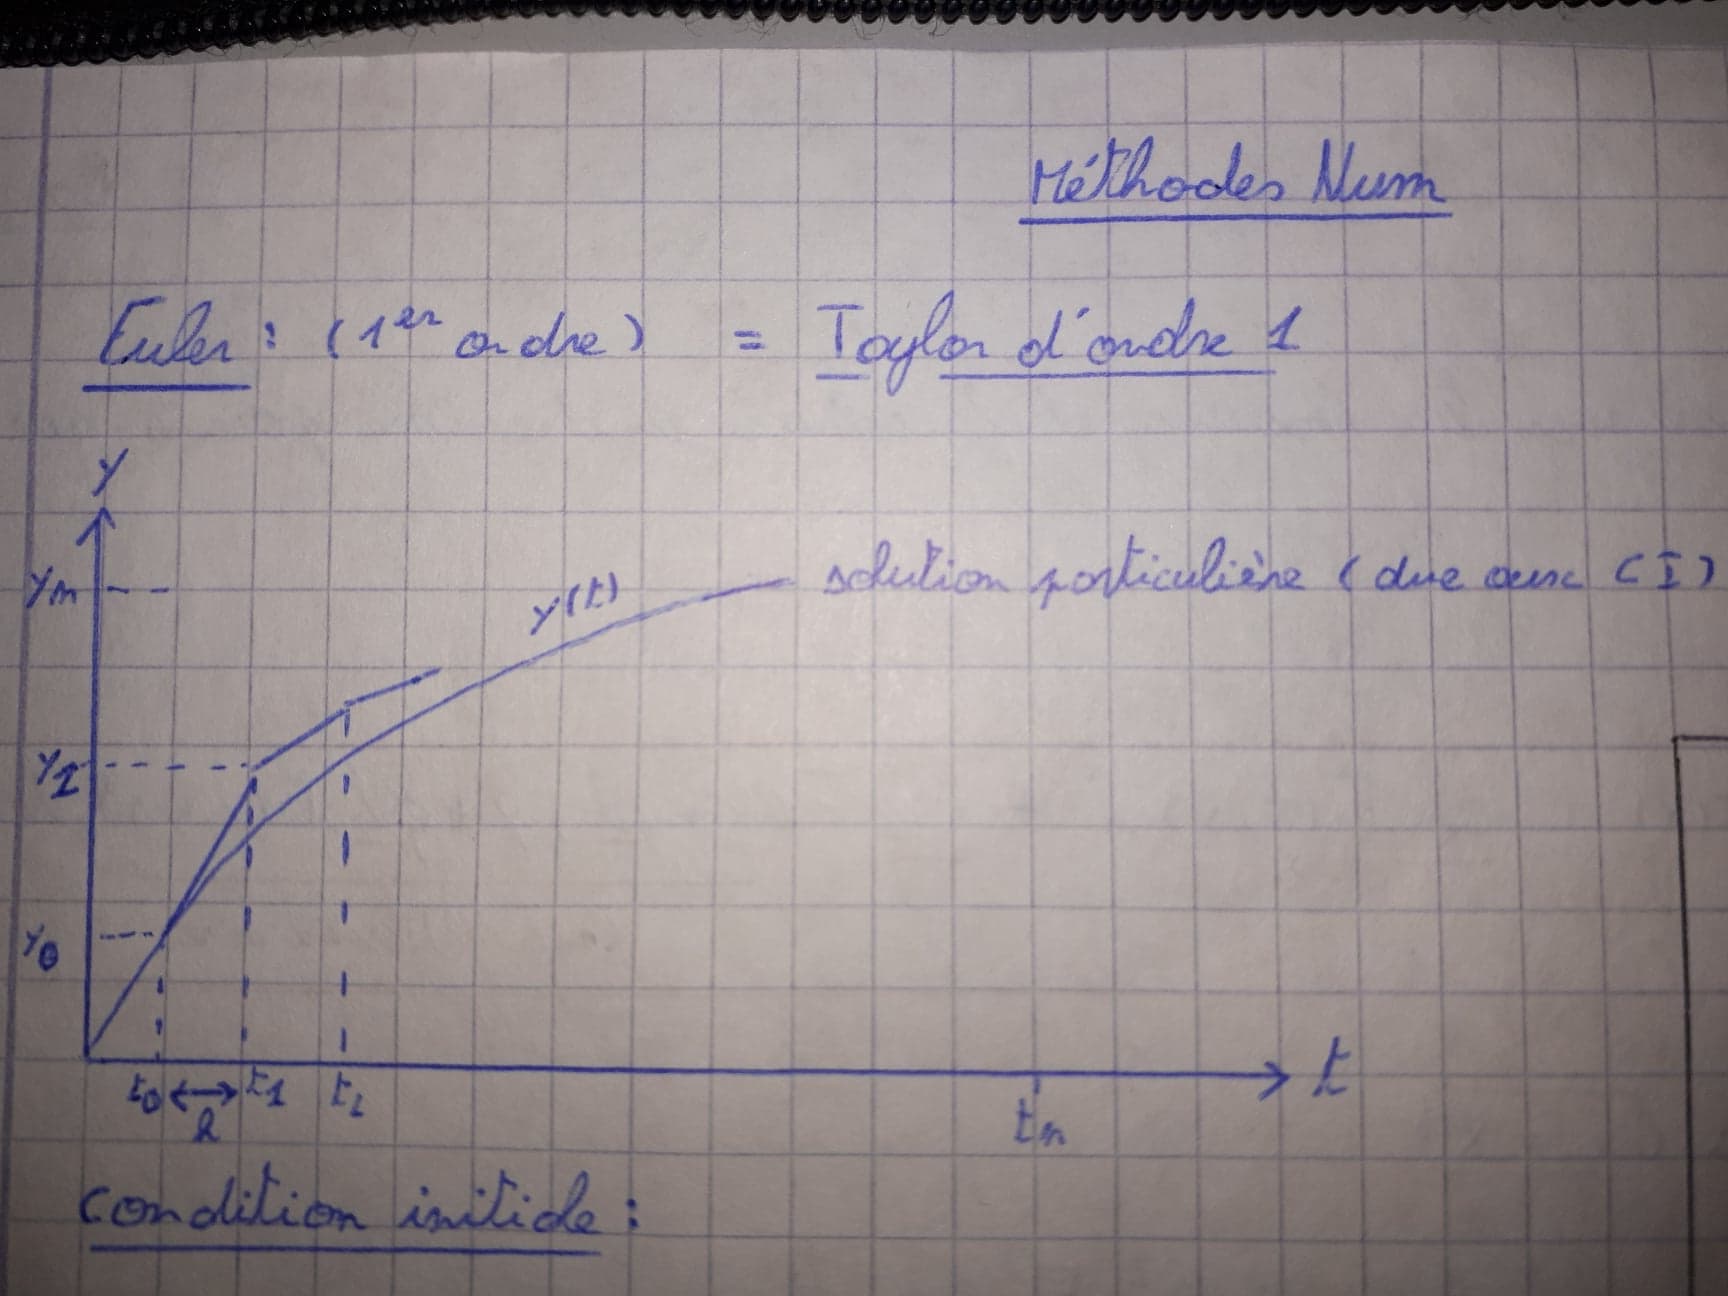 Méthodes Num
Euler : (1er ordre) = Taylor d'ordre 1
y
yn
y(t) solution particulière (due aux CI)
y1
y0
t0 h t1 t2 tn t
condition initiale :